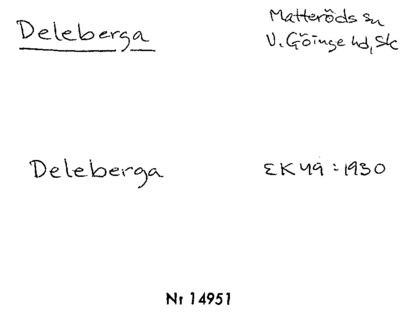 Deleberga
Matteröds sn
V. Göinge hd, Sk
Deleberga
EK 49 : 1930
Nr 14951